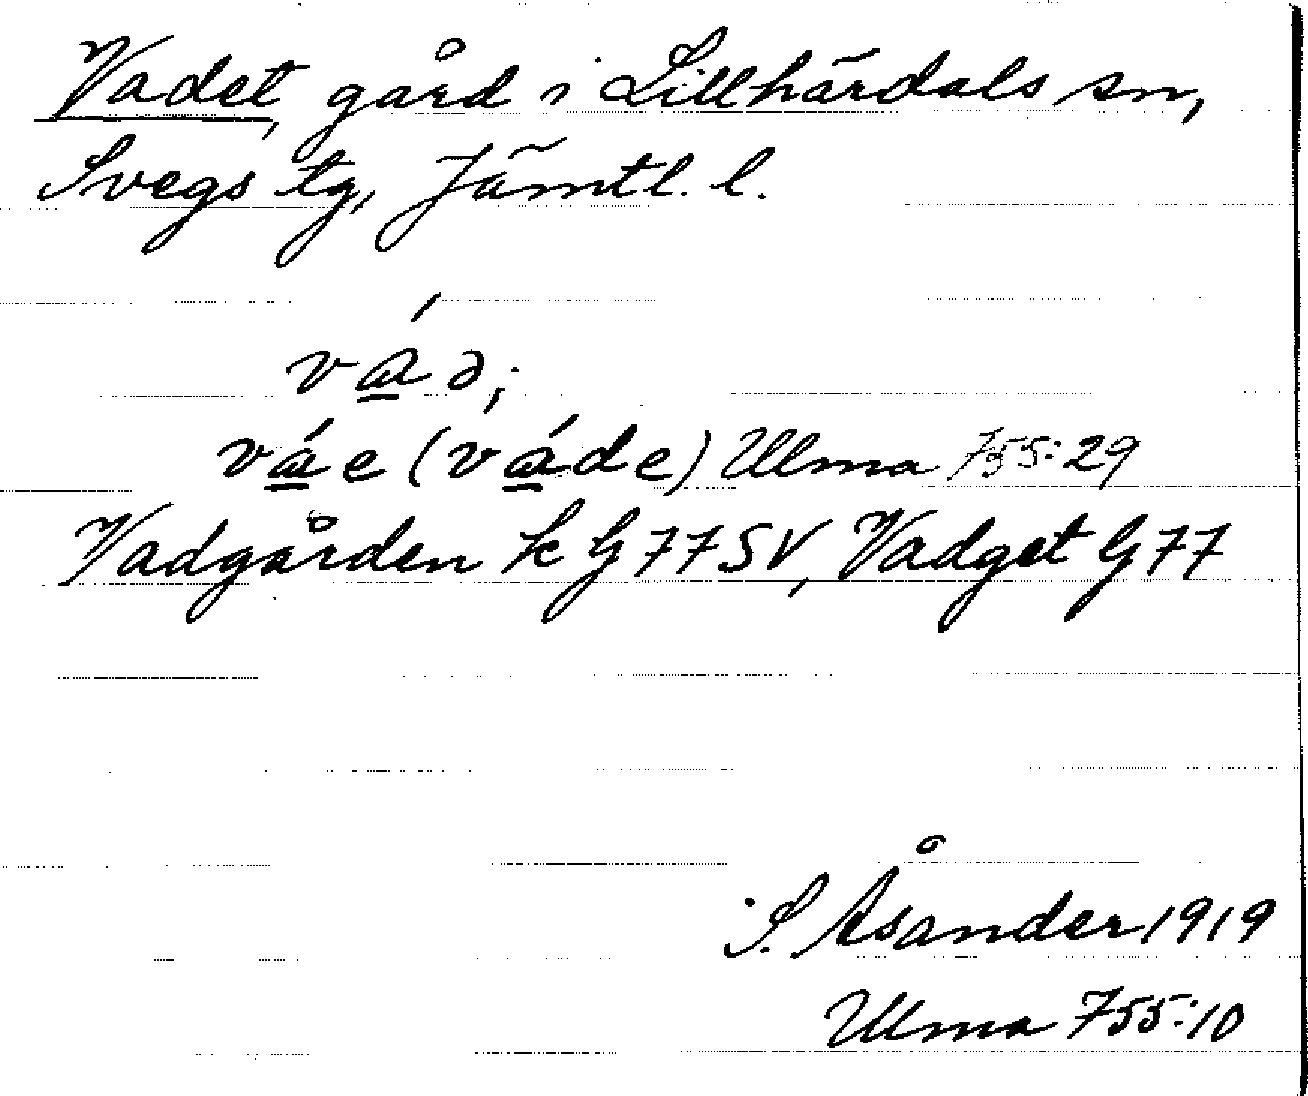 Vadet, gård i Lillhärdals sn,
Svegs tg, Jämtl. l.
vá̲ ə;
vá̲e (vá̲de) Ulma 755:29
Vadgården k G77SV, Vadget G77
S. Åsander 1919
Ulma 755:10